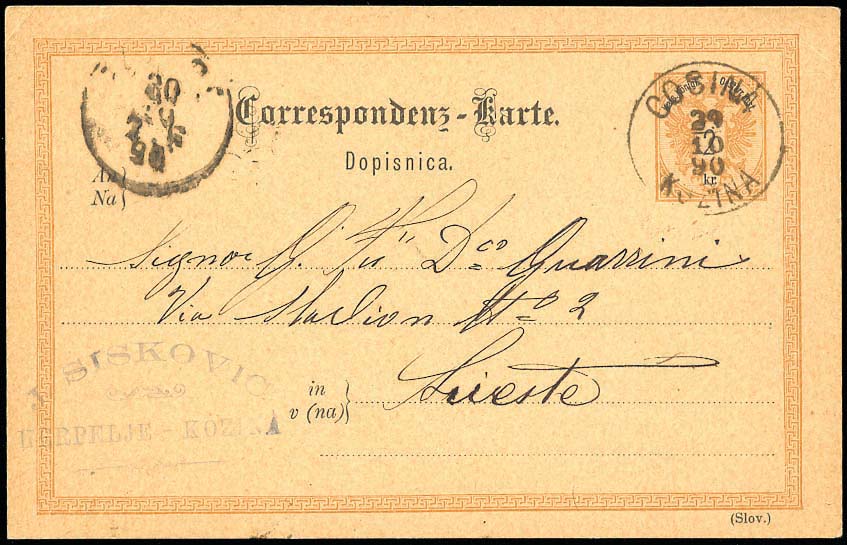 COSINA
29
10
90
KOZINA
2
kr.
30
90
Correspondenz-Karte.
Dopisnica.
An
Na
Signor G. Fu Dco Guarrini
Via Stadion No 2
in
v (na)
Trieste
J. SISKOVIC
HERPELJE - KOZINA
(Slov.)